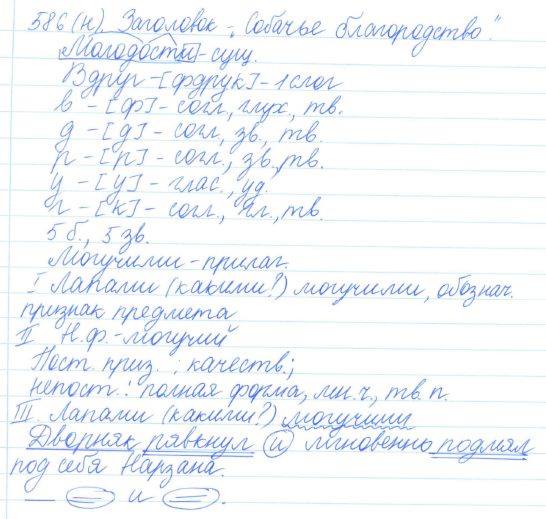 586 (н). Заголовок - „Собачье благородство."
Молодости - сущ.
Вдруг - [фдрук] - 1 слог
в - [ф] - согл., глух., тв.
д - [д] - согл., зв., тв.
р - [р] - согл., зв., тв.
у - [у] - глас., уд.
г - [к] - согл., гл., тв.
5 б., 5 зв.
Могучими - прилаг.
I Лапами (какими?) могучими, обознач.
признак предмета
II Н.ф. - могучий
Пост. приз.: качеств.;
непост.: полная форма, мн.ч., тв. п.
III. Лапами (какими?) могучими
Дворняк рявкнул и мгновенно подмял
под себя Нарзана.
и